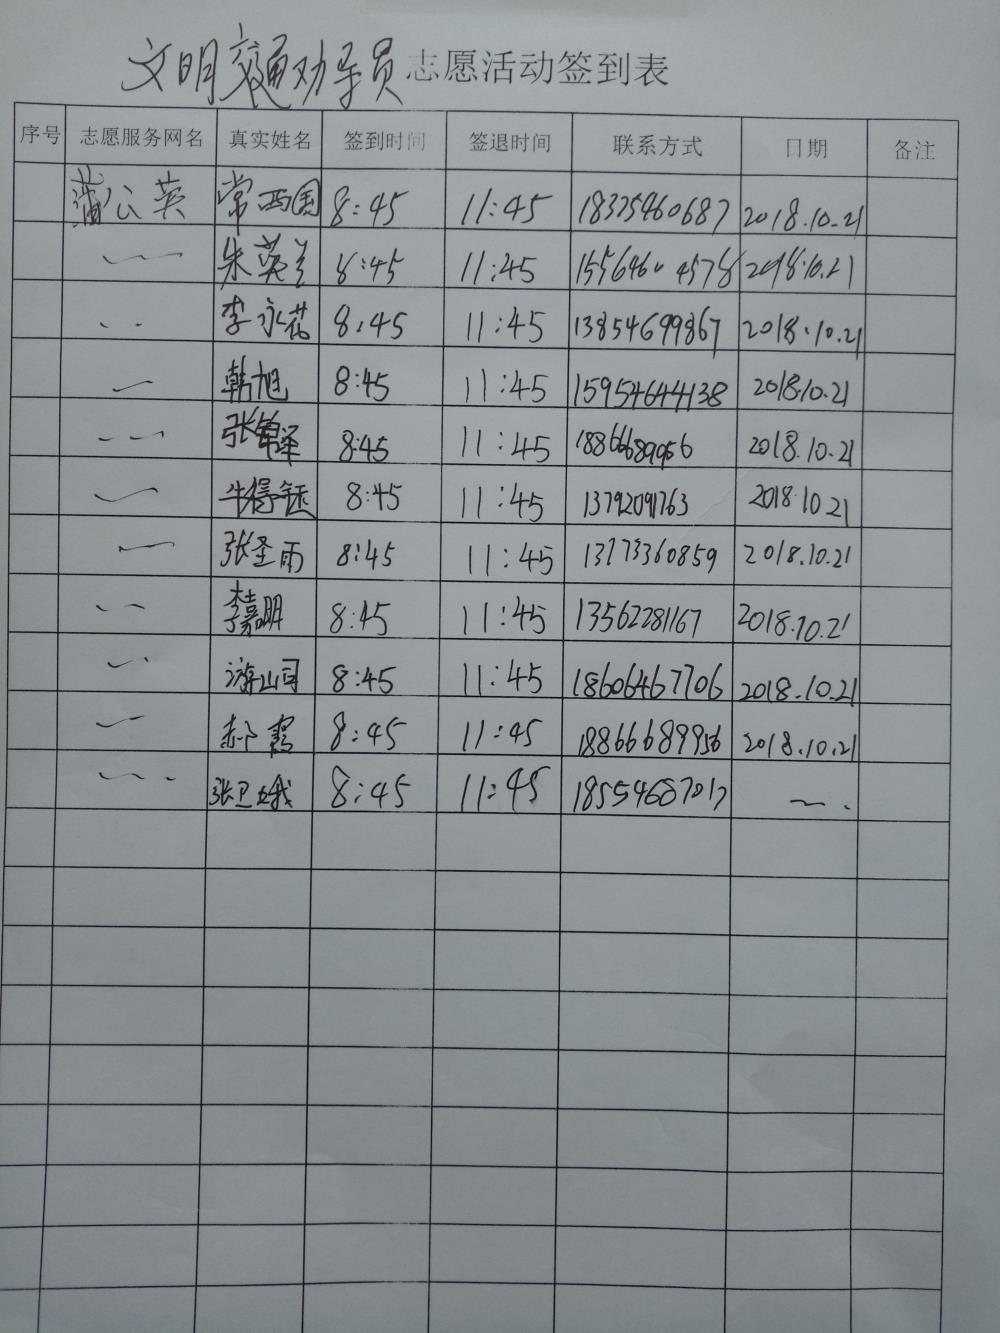 文明交通劝导员志愿活动签到表
序号 志愿服务网名 真实姓名 签到时间 签退时间 联系方式 日期 备注
蒲公英 常西国 8:45 11:45 18325460687 2018.10.21
朱英兰 8:45 11:45 15564604578 2018.10.21
李永花 8:45 11:45 13854699867 2018.10.21
韩旭 8:45 11:45 15954644138 2018.10.21
张 泽 8:45 11:45 18866689956 2018.10.21
牛得钰 8:45 11:45 13792091763 2018.10.21
张圣雨 8:45 11:45 13173360859 2018.10.21
李嘉明 8:45 11:45 13562281167 2018.10.21
游山司 8:45 11:45 18606467706 2018.10.21
郝霞 8:45 11:45 18866689956 2018.10.21
张卫娥 8:45 11:45 18554687017